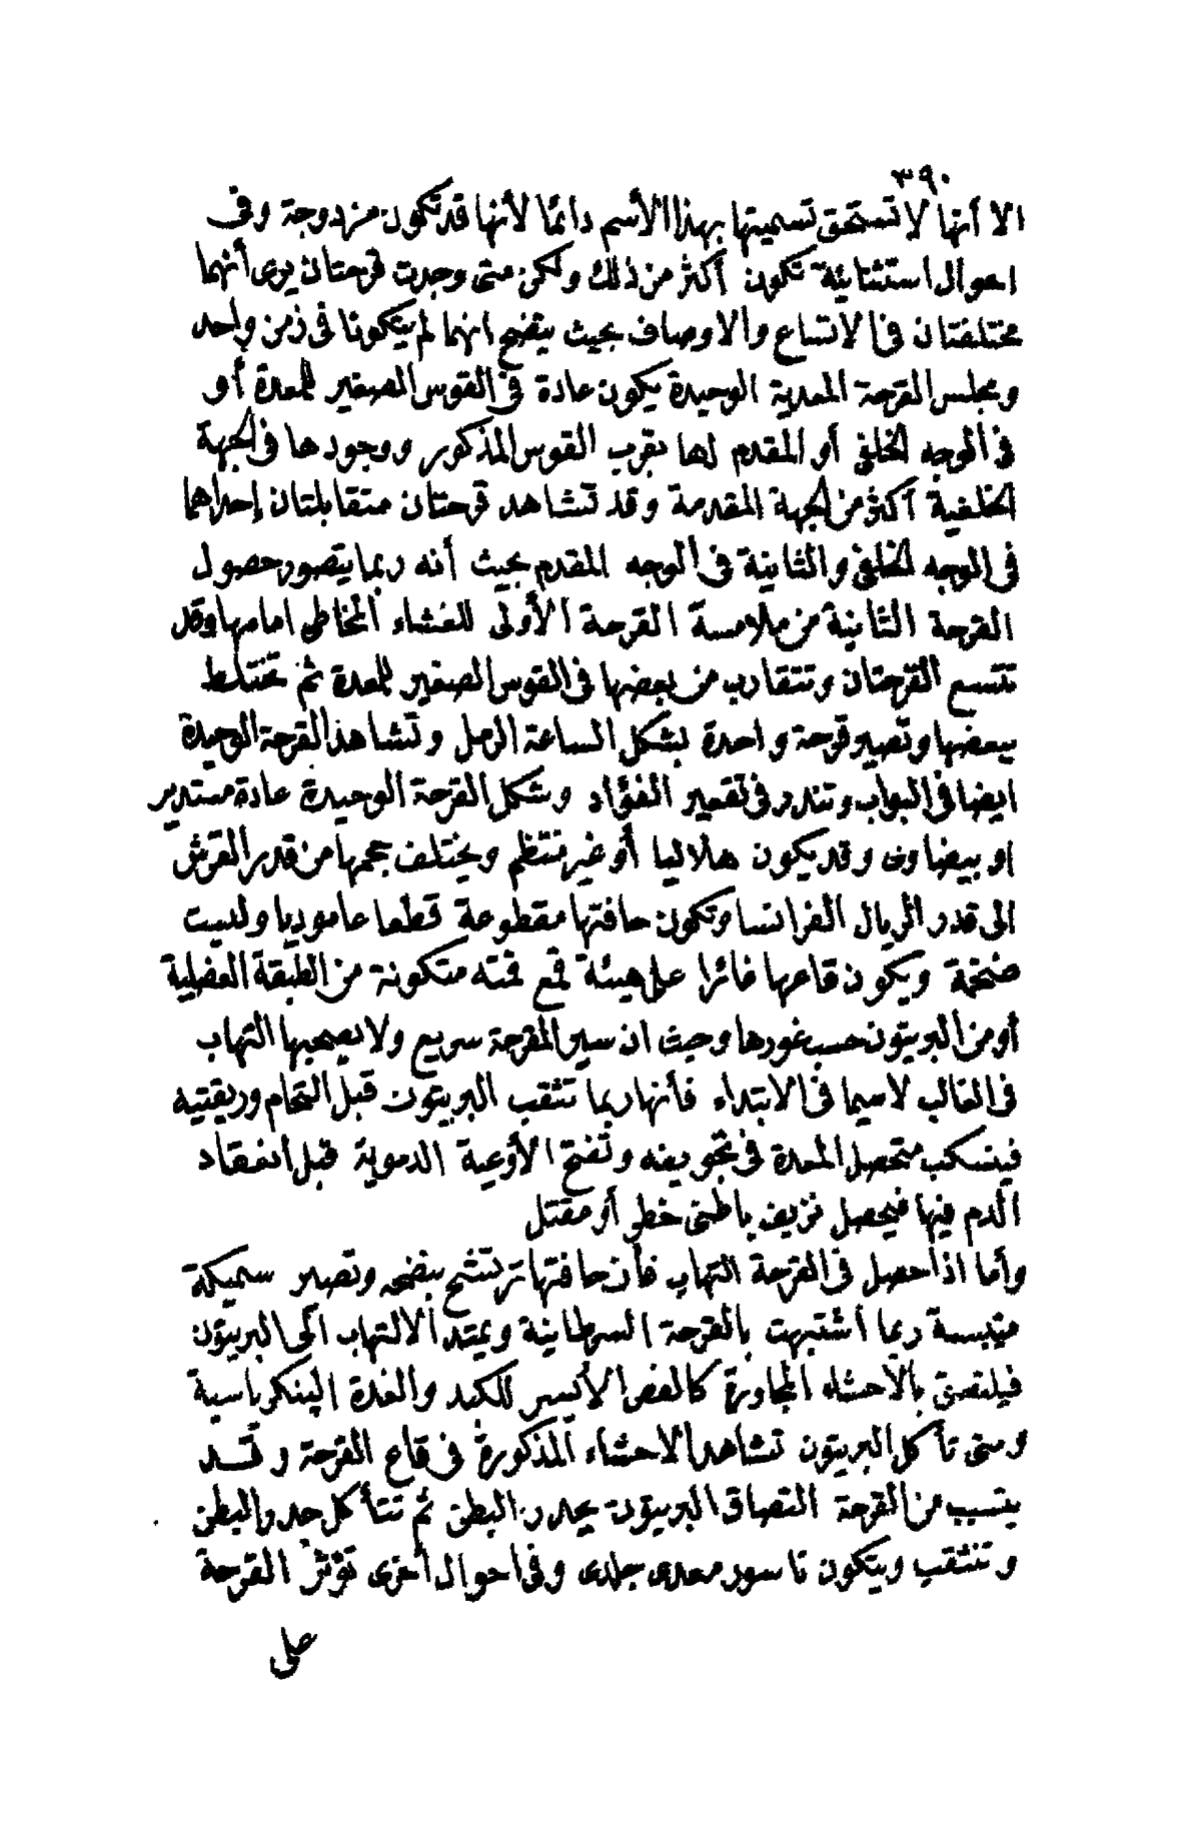 ٣٩٠
الا أنها لا تستحق تسميتها بهذا الأسم دائمًا لأنها قد تكون مزدوجة وفى
احوال استثنائية تكون أكثر من ذلك ولكن متى وجدت قرحتان يرى أنهما
مختلفتان فى الاتساع والاوصاف بحيث يتضح انهما لم يتكونا فى زمن واحد
ومجلس القرحة المعدية الوحيدة يكون عادة فى القوس الصغير للمعدة أو
فى الوجه الخلفى أو المقدم لها بقرب القوس المذكور ووجودها فى الجهة
الخلفية أكثر من الجهة المقدمة وقد تشاهد قرحتان متقابلتان إحداهما
فى الوجه الخلفى والثانية فى الوجه المقدم بحيث أنه ربما يتصور حصول
القرحة الثانية من ملامسة القرحة الأولى للغشاء المخاطى امامها وقد
تتسع القرحتان وتتقارب من بعضها فى القوس الصغير للمعدة ثم تختلط
ببعضها وتصير قرحة واحدة بشكل الساعة الرمل وتشاهذ القرحة الوحيدة
ايضا فى البواب وتندر فى تقعير الفؤاد وشكل القرحة الوحيدة عادة مستدير
او بيضاوى وقد يكون هلاليا أو غير منتظم ويختلف حجمها من قدر القرش
الى قدر الريال الفرانسا وتكون حافتها مقطوعة قطعا عاموديا وليست
ضخمة ويكون قاعها غائرا على هيئة قمع قمته متكونة من الطبقة العضلية
أو من البريتون حسب غورها وحيث ان سير القرحة سريع ولا يصحبها التهاب
فى الغالب لاسيما فى الابتداء فأنها ربما تثقب البريتون قبل التحام وريقتيه
فينسكب متحصل المعدة فى تجويفه وتفتح الأوعية الدموية قبل انعقاد
الدم فيها فيحصل نزيف باطنى خطر أو مقتل
وأما اذا حصل فى القرحة التهاب فأن حافتها ترتشح بنضحه وتصير سميكة
متيبسة ربما أشتبهت بالقرحة السرطانية ويمتد الالتهاب الى البريتون
فيلتصق بالاحشاء المجاورة كالفص الأيسر للكبد والغدة البنكرياسية
ومتى تأكل البريتون تشاهد الاحشاء المذكورة فى قاع القرحة وقد
يتسبب من القرحة التصاق البريتون بجدر البطن ثم تتأكل جدر البطن
وتنثقب ويتكون ناسور معدى جلدى وفى احوال أخرى تؤثر القرحة
على